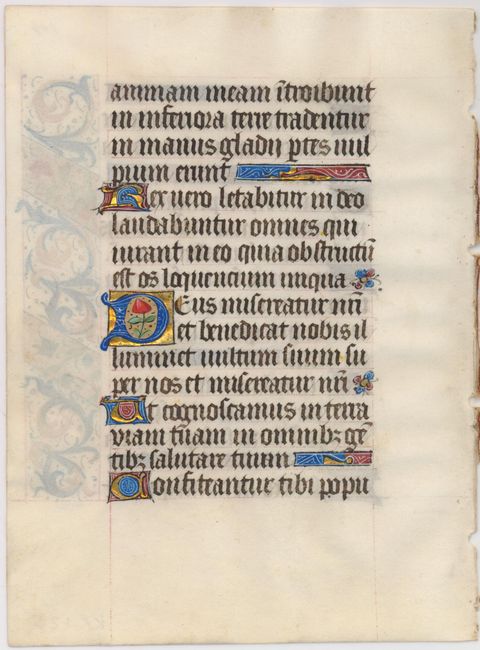 animam meam ītroibunt
in inferiora terre tradentur
in manus gladii ptes uul
pium erunt
Rex uero letabitur in deo
laudabuntur omnes qui
iurant in eo quia obstructū
est os loquencium iniqua
Deus misereatur nr̄i
et benedicat nobis il
luminet uultum suum su
per nos et misereatur nr̄i
Ut cognoscamus in terra
viam tuam in omnibꝫ gē
tibꝫ salutare tuum
Confiteantur tibi popu